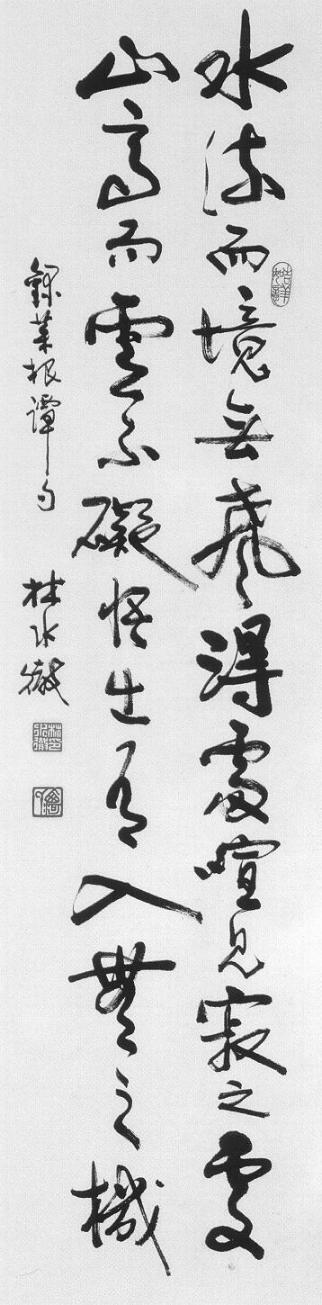 水流而境無聲得處喧見寂之趣
山高而雲不礙悟出有入無之機
錄菜根譚句 林水徹